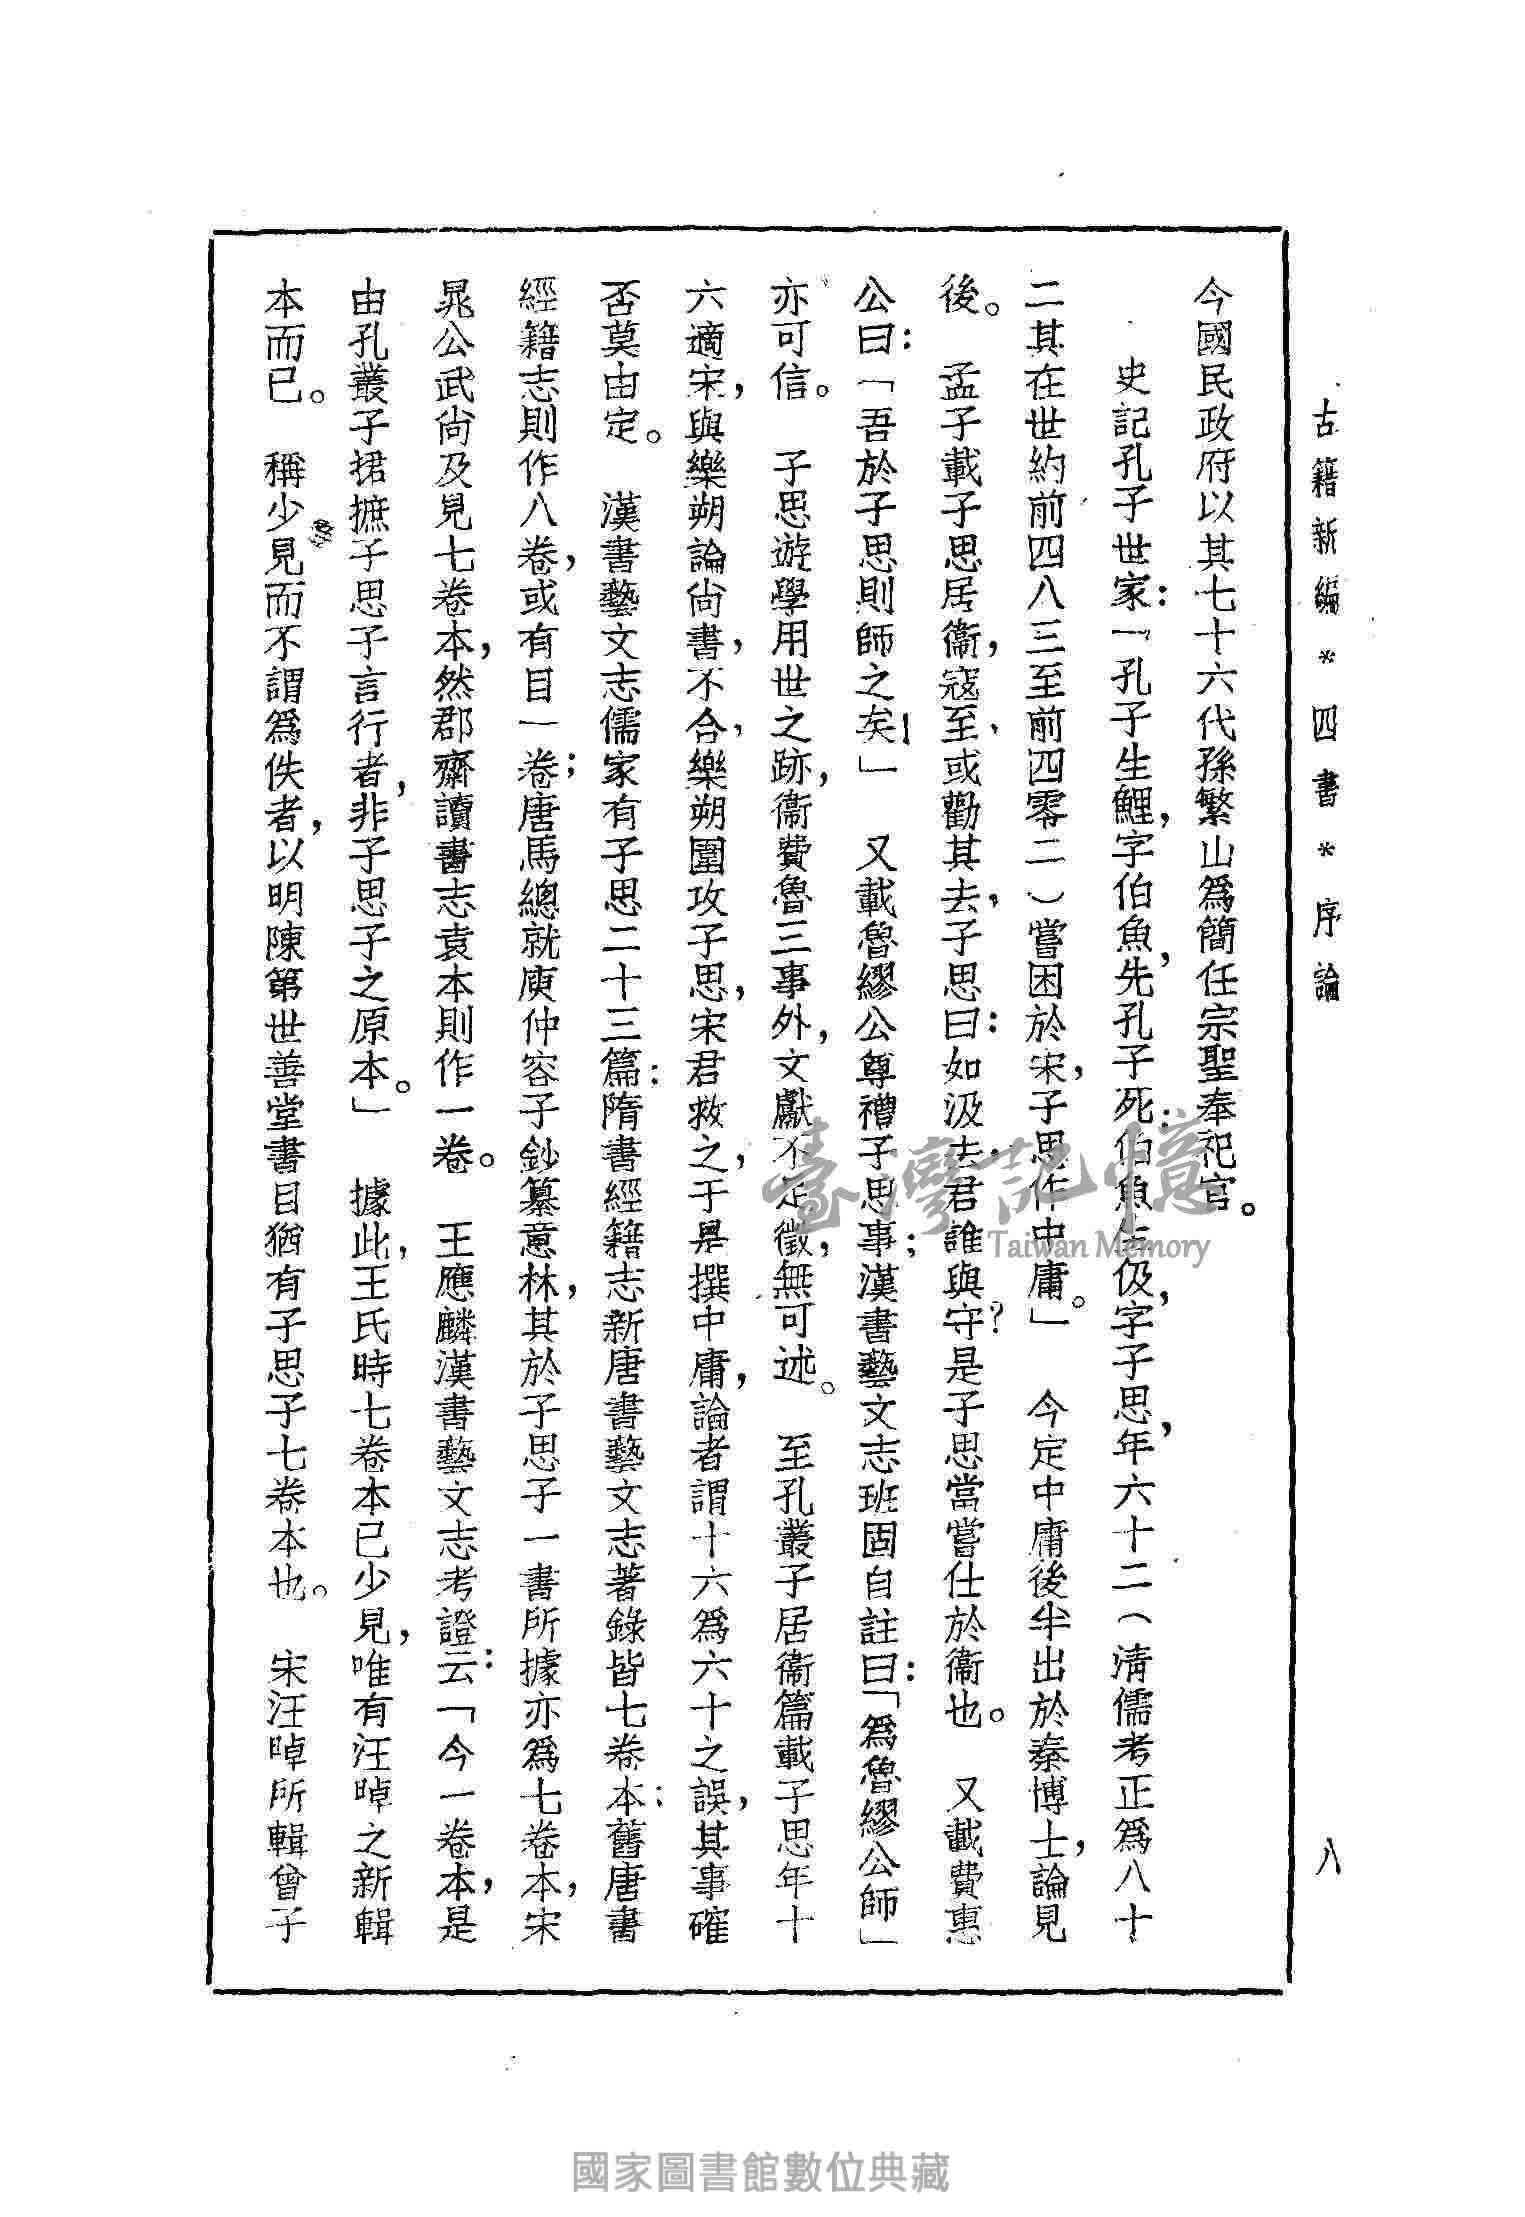 古籍新編*四書*序論 八
今國民政府以其七十六代孫繁山爲簡任宗聖奉祀官。
史記孔子世家:「孔子生鯉,字伯魚,先孔子死:伯魚生伋,字子思,年六十二(清儒考正爲八十
二其在世約前四八三至前四零二)嘗困於宋,子思作中庸。」 今定中庸後半出於秦博士,論見
後。 孟子載子思居衞,寇至,或勸其去,子思曰:如汲去,君誰與守?是子思當嘗仕於衞也。 又載費惠
公曰:「吾於子思則師之矣!」 又載魯繆公尊禮子思事;漢書藝文志班固自註曰:「爲魯繆公師」
亦可信。 子思遊學用世之跡,衞費魯三事外,文獻不足徵,無可述。 至孔叢子居衞篇載子思年十
六適宋,與樂朔論尙書,不合,樂朔圍攻子思,宋君救之,于是撰中庸,論者謂十六爲六十之誤,其事確
否莫由定。 漢書藝文志儒家有子思二十三篇:隋書經籍志新唐書藝文志著錄皆七卷本:舊唐書
經籍志則作八卷,或有目一卷;唐馬總就庾仲容子鈔纂意林,其於子思子一書所據亦爲七卷本,宋
晁公武尙及見七卷本,然郡齋讀書志袁本則作一卷。 王應麟漢書藝文志考證云:「今一卷本,是
由孔叢子捃摭子思子言行者,非子思子之原本。」 據此,王氏時七卷本已少見,唯有汪晫之新輯
本而已。 稱少見而不謂爲佚者,以明陳第世善堂書目猶有子思子七卷本也。 宋汪晫所輯曾子
臺灣記憶
Taiwan Memory
國家圖書館數位典藏